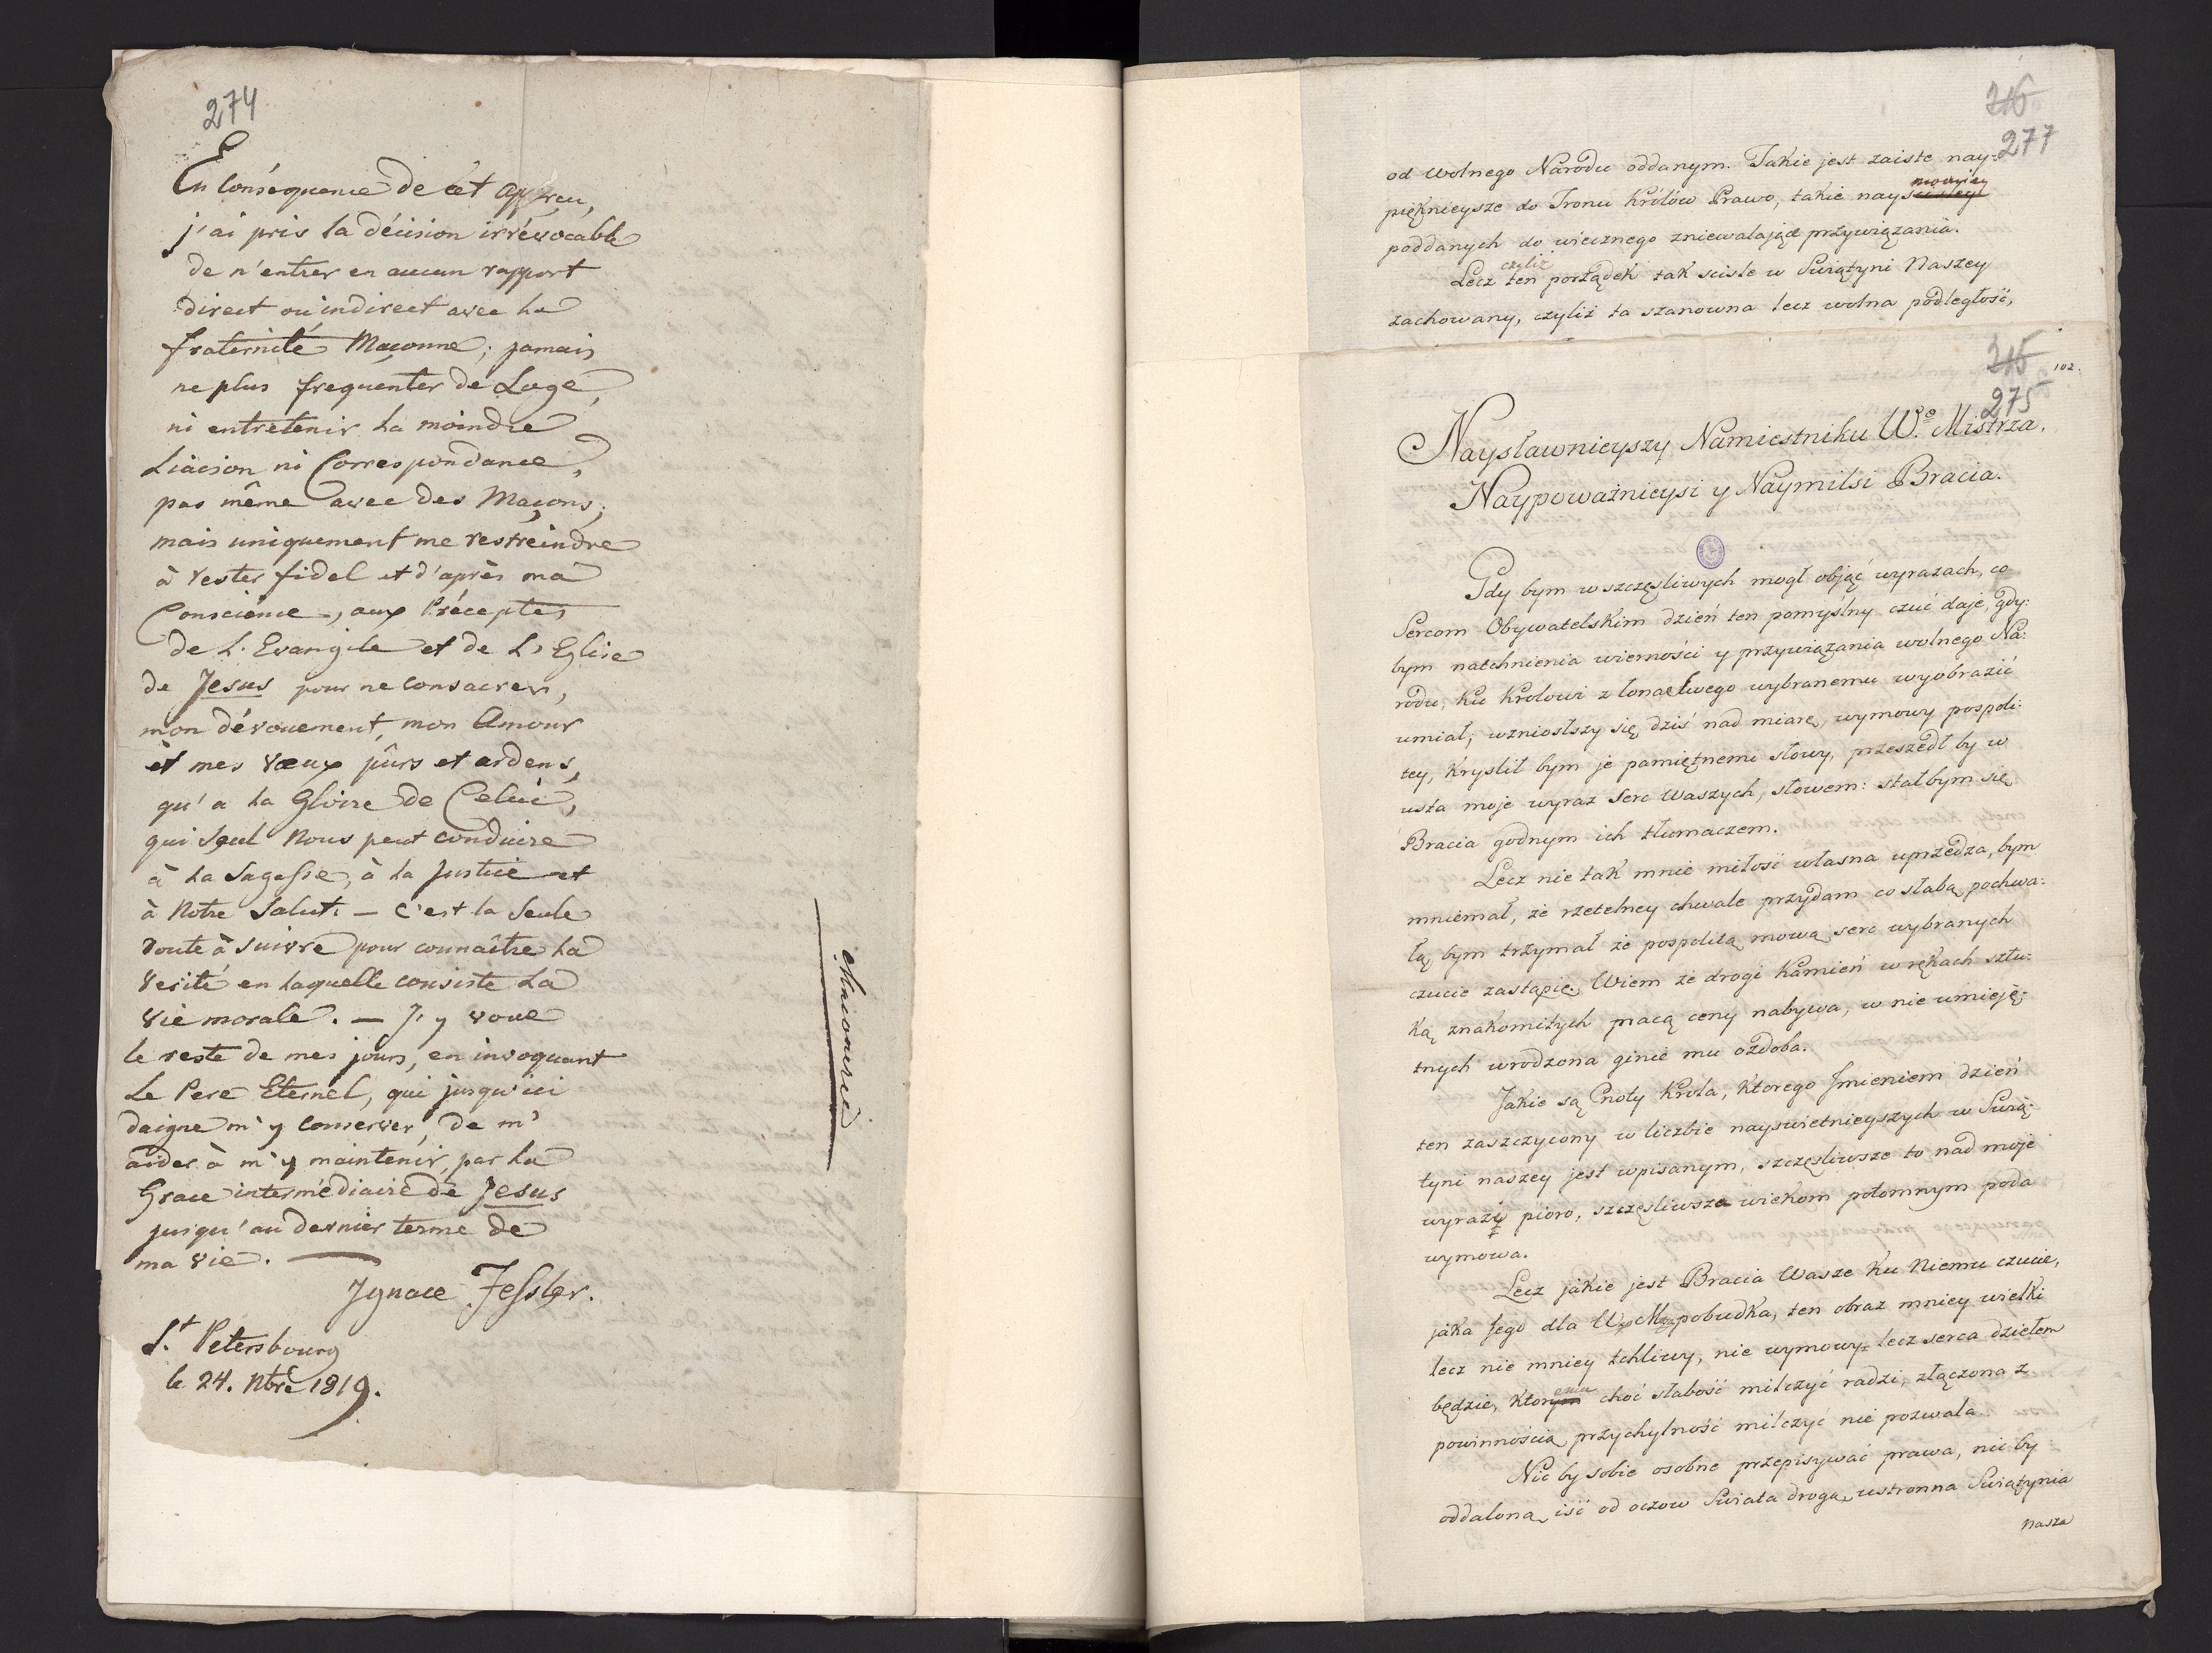 274
En Conséquence de cèt apperçu,
j'ai pris la décision irrévocable
de n'entrer en aucun rapport
direct ou indirect avec la
fraternité Maçonne; jamais
ne plus frequenter de Loge,
ni entretenir la moindre
Liaison ni Correspondance,
pas même avec des Maçons;
mais uniquement me restreindre
à rester fidel et d'après ma
Conscience, aux Préceptes
de L'Evangile et de L'Eglise
de Jesus pour ne consacrer,
mon dévouement, mon Amour
et mes vœux pûrs et ardens,
qu'a la Gloire de Celui,
qui seul Nous peut conduire
à la Sagesse, à la Justice et
à Notre Salut. — C'est la Seule
route à suivre pour connaître la
verité en laquelle consiste la
vie morale. — J'y voue
le reste de mes jours, en invoquant
Le Pere Eternel, qui jusqu'ici
daigne m'y conserver, de m'
aider à m'y maintenir, par la
Grace intermédiaire de Jesus
jusqu'au dernier terme de
ma vie. —
Ignace Fessler.
St. Petersbourg
le 24. Nbre 1819.
Maçonerie
216
277
od wolnego Narodu oddanym. Takie jest zaiste nay-
pięknieysze do Tronu Królów Prawo, takie nays
poddanych do wiecznego zniewalające przywiązania.
czyliż
Lecz ten porządek tak sciśle w Swiątyni Naszey
zachowany, czyliż ta szanowna lecz wolna podległość,
215
102.
275
Naysławnieyszy Namiestniku Wo. Mistrza.
Naypoważnieysi y Naymilsi Bracia.
Gdy bym w szczęsliwych mogł objąć wyrazach, co
Sercom Obywatelskim dzień ten pomyślny czuć daje, gdy:
bym natchnienia wierności y przywiązania wolnego Na:
rodu, ku Krolowi z łona Swego wybranemu wyobrazić
umiał; wzniosłszy się dziś nad miarę, wymowy pospoli:
tey, kryslił bym je pamiętnemi słowy, przeszedł by w
usta moje wyraz Serc Waszych, słowem: stałbym się
Bracia godnym ich tłumaczem.
Lecz nie tak mnie miłość własna uprzedza, bym
mniemał, że rzetelney chwale przydam co słabą pochwa:
łą, bym trzymał że pospolitą mową serc wybranych
czucie zastąpię. Wiem że drogi Kamień w rękach sztu:
ką znakomitych pracą ceny nabywa, w nie umieję:
tnych wrodzona ginie mu ozdoba.
Jakie są Cnoty Krola, Ktorego Imieniem dzień
ten zaszczycony w liczbie nayswietnieyszych w Swią:
tyni naszey jest wpisanym, szczęsliwsze to nad moje
wyrazi pioro, szczęsliwsza wiekom potomnym poda
wymowa.
Lecz jakie jest Bracia Wasze Ku Niemu czucie,
jaka Jego dla pobudka, ten obraz mniey wielki
lecz nie mniey tchliwy, nie wymowy lecz serca dziełem
będzie, Ktorym choć słabość milczyć radzi, złączona z
powinnością przychylność milczyć nie pozwala.
Nie by sobie osobne przepisywać prawa, nie by
oddaloną iść od oczow Swiata drogą, ustronna Swiątynia
nasza